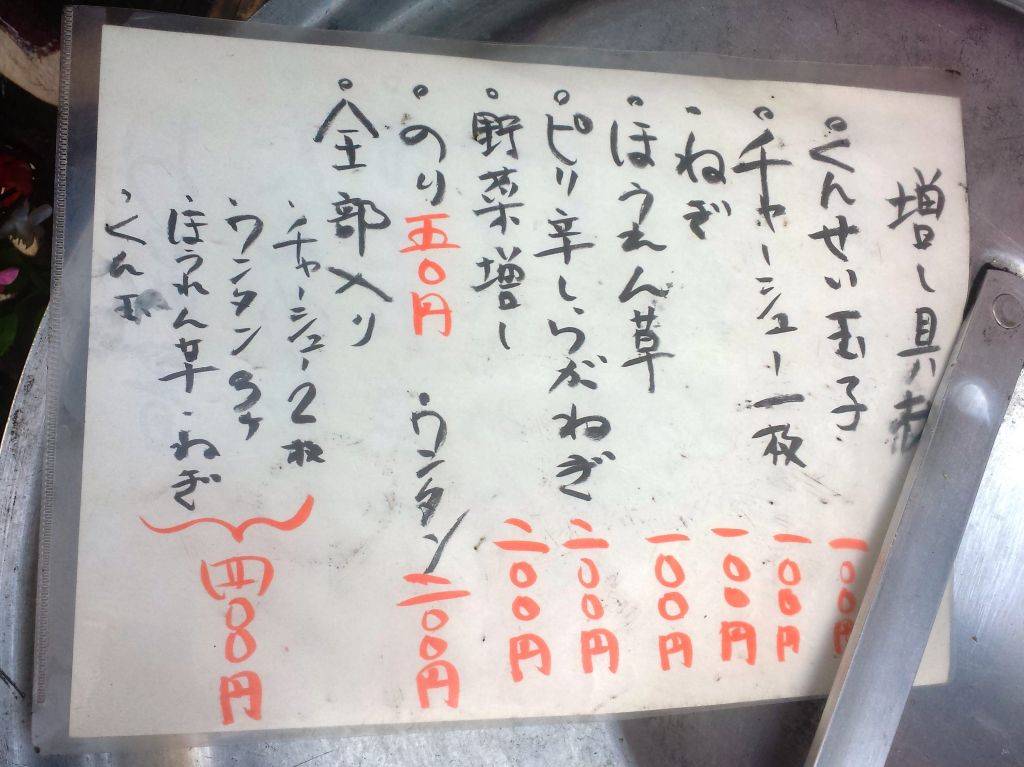 増し具材
くんせい玉子 一〇〇円
チャーシュー一枚 一〇〇円
ねぎ 一〇〇円
ほうれん草 一〇〇円
ピリ辛しらがねぎ 二〇〇円
野菜増し 二〇〇円
のり 五〇円 ワンタン 二〇〇円
全部入り
チャーシュー2枚
ワンタン3ケ
ほうれん草・ねぎ
くん玉
四〇〇円